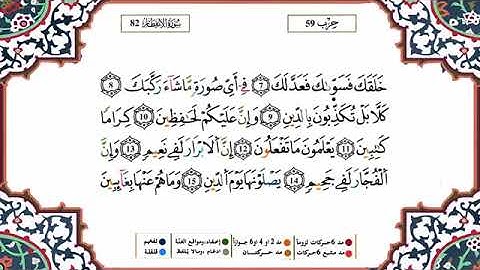 حزب 59
سورة الانفطار 82
خَلَقَكَ فَسَوَّىٰكَ فَعَدَلَكَ ۝7 فِىٓ أَىِّ صُورَةٍ مَّا شَآءَ رَكَّبَكَ ۝8
كَلَّا بَلْ تُكَذِّبُونَ بِالدِّينِ ۝9 وَإِنَّ عَلَيْكُمْ لَحَـٰفِظِينَ ۝10 كِرَامًا
كَـٰتِبِينَ ۝11 يَعْلَمُونَ مَا تَفْعَلُونَ ۝12 إِنَّ الْأَبْرَارَ لَفِى نَعِيمٍ ۝13 وَإِنَّ
الْفُجَّارَ لَفِى جَحِيمٍ ۝14 يَصْلَوْنَهَا يَوْمَ الدِّينِ ۝15 وَمَا هُمْ عَنْهَا بِغَآئِبِينَ
مد 6 حركات لزوما مد 2 أو 4 أو 6 جوازا إخفاء ومواقع الغنّة تفخيم
مد مشبع 6 حركات مد حركتان ادغام وما لا يلفظ قلقلة